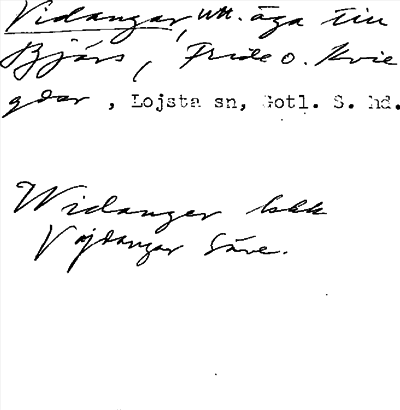 Vidangar, utt. äga till
Bjärs, Fride o. Kvie
gdar, Lojsta sn, Gotl. S. hd.
Widanger bkk
Vajdangar Säve.